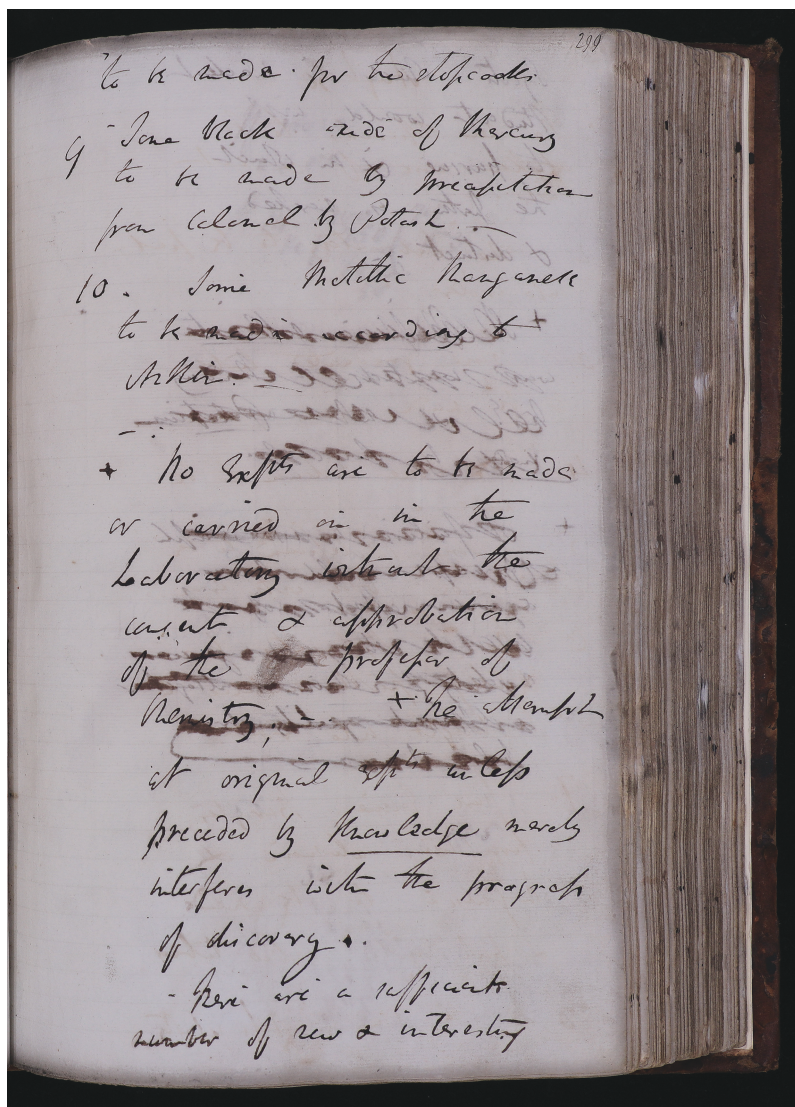 299
to be made for the stopcocks
9 Some black oxide of Mercury
to be made by precipitation
from Calomel by Potash. –
10. Some Metallic Manganese
to be made according to
–.
+ No Exp^ts are to be made
or carried on in the
Laboratory without the
consent & approbation
of the professor of
Chemistry. – + The attempt
at original exp^ts unless
preceded by Knowledge merely
interferes with the progress
of discovery.
- There are a sufficient
number of new & interesting